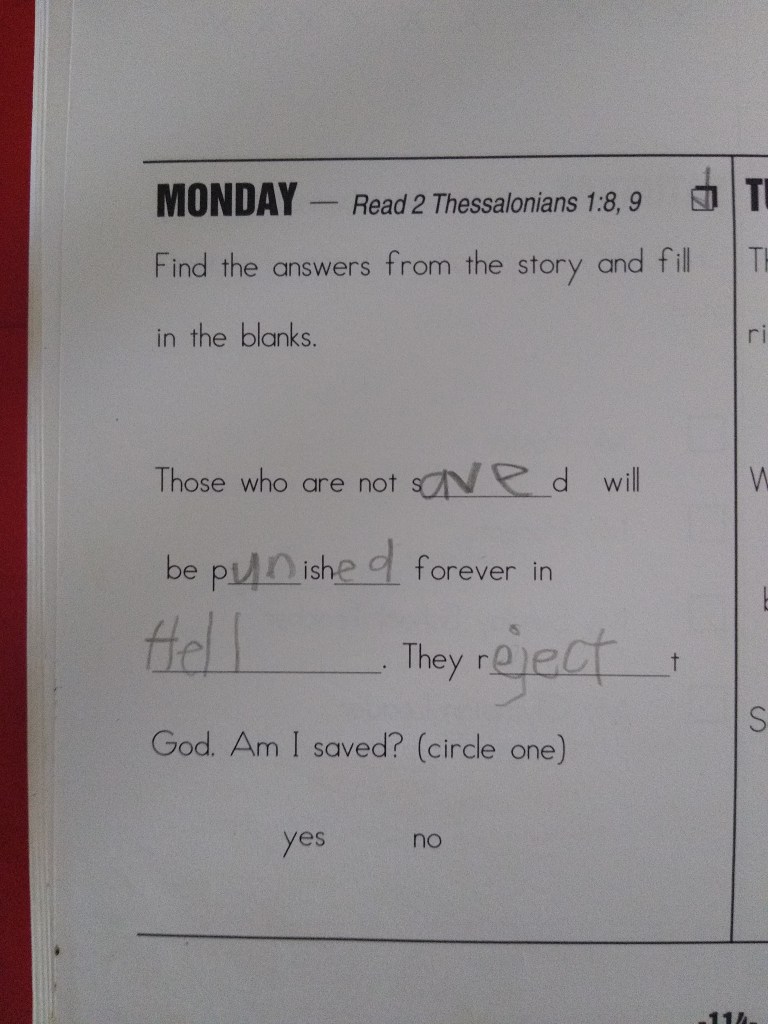 MONDAY — Read 2 Thessalonians 1:8, 9
Find the answers from the story and fill
in the blanks.
Those who are not saved will
be punished forever in
Hell. They rejectt
God. Am I saved? (circle one)
yes no
-114-
TU
Th
ri
W
b
S